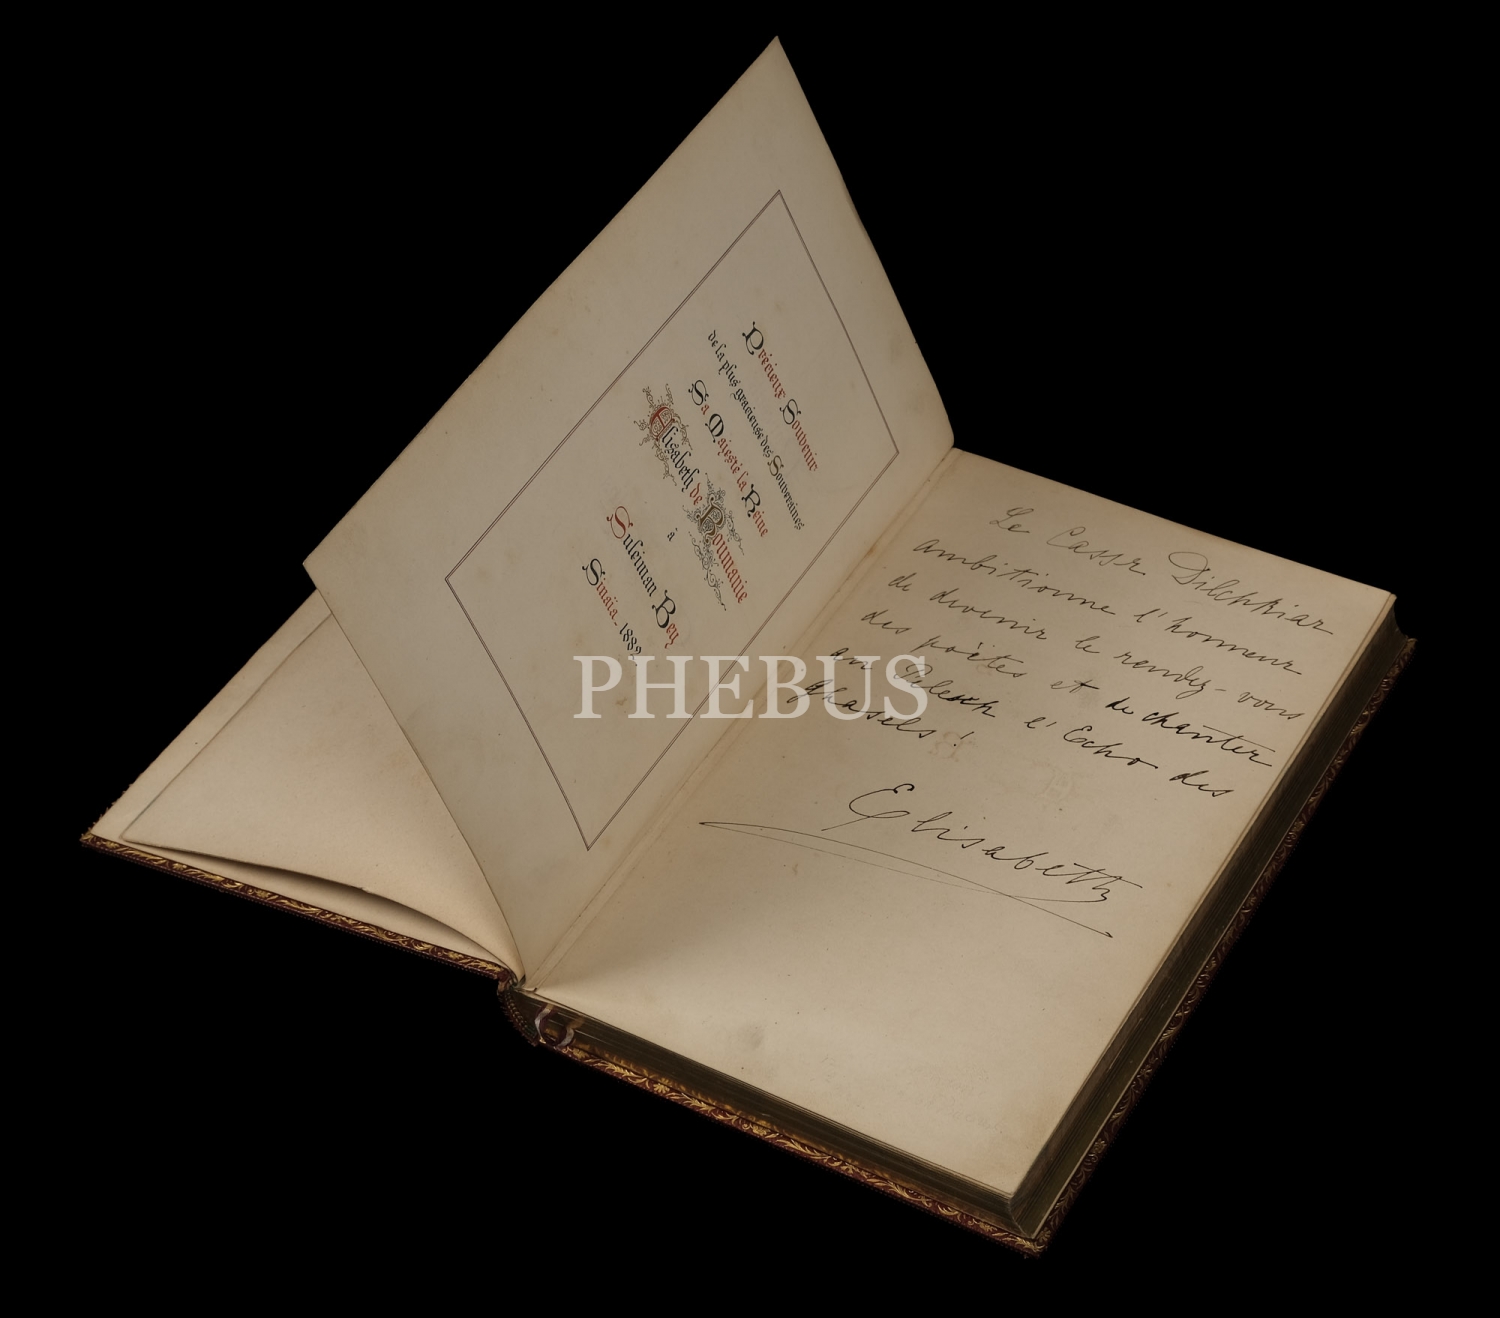 Précieux Souvenir
de la plus gracieuse des Souveraines
Sa Majesté la Reine
Elisabeth de Roumanie
à
Suleïman Bey
Sinaïa. 1882
Le Cassr Dilchkiar
ambitionne l'honneur
de devenir le rendez-vous
des poëtes et de chanter
au Pelesch l'Echo des
ghasels!
Elisabeth
PHEBUS